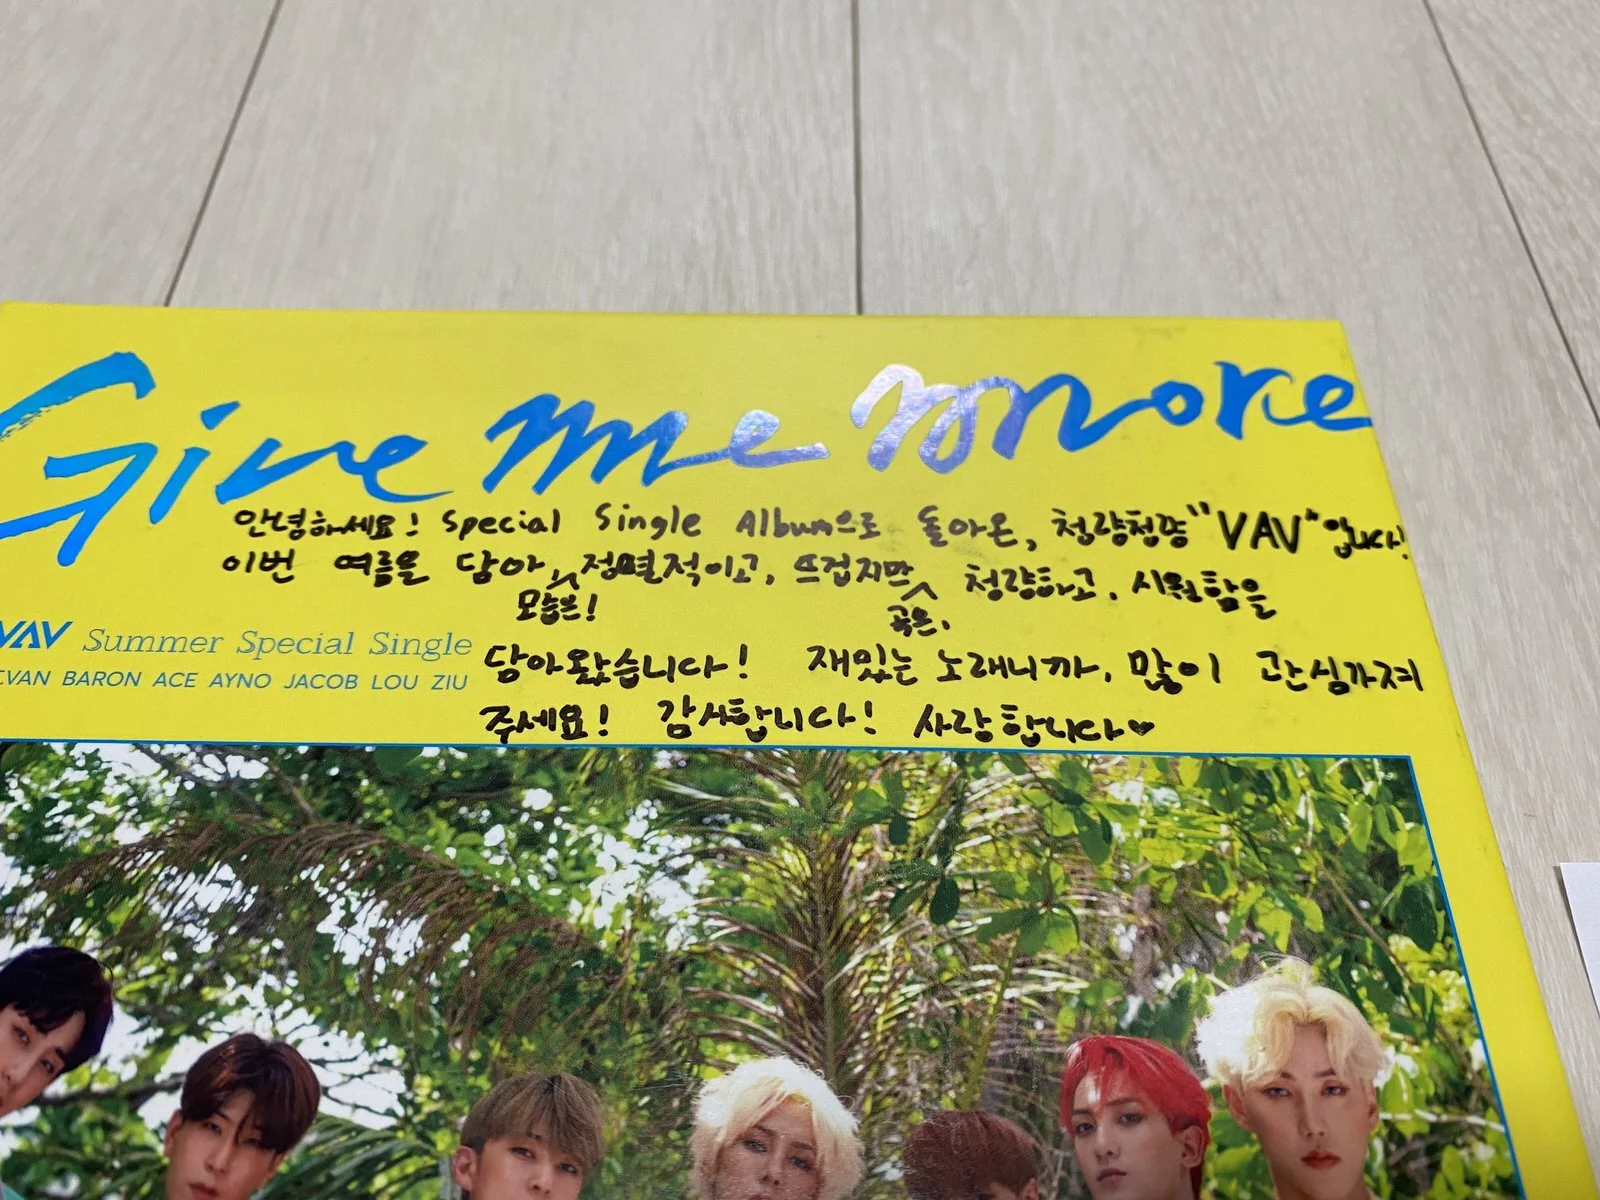 Give me more
안녕하세요! Special Single Album으로 돌아온, 청량청량 "VAV"입니다!
이번 여름을 담아, 정멸적이고, 뜨겁지만 청량하고, 시원함을
모습은! 곡은,
VAV Summer Special Single
담아왔습니다! 재밌는 노래니까, 많이 관심가져
EVAN BARON ACE AYNO JACOB LOU ZIU
주세요! 감사합니다! 사랑합니다♥